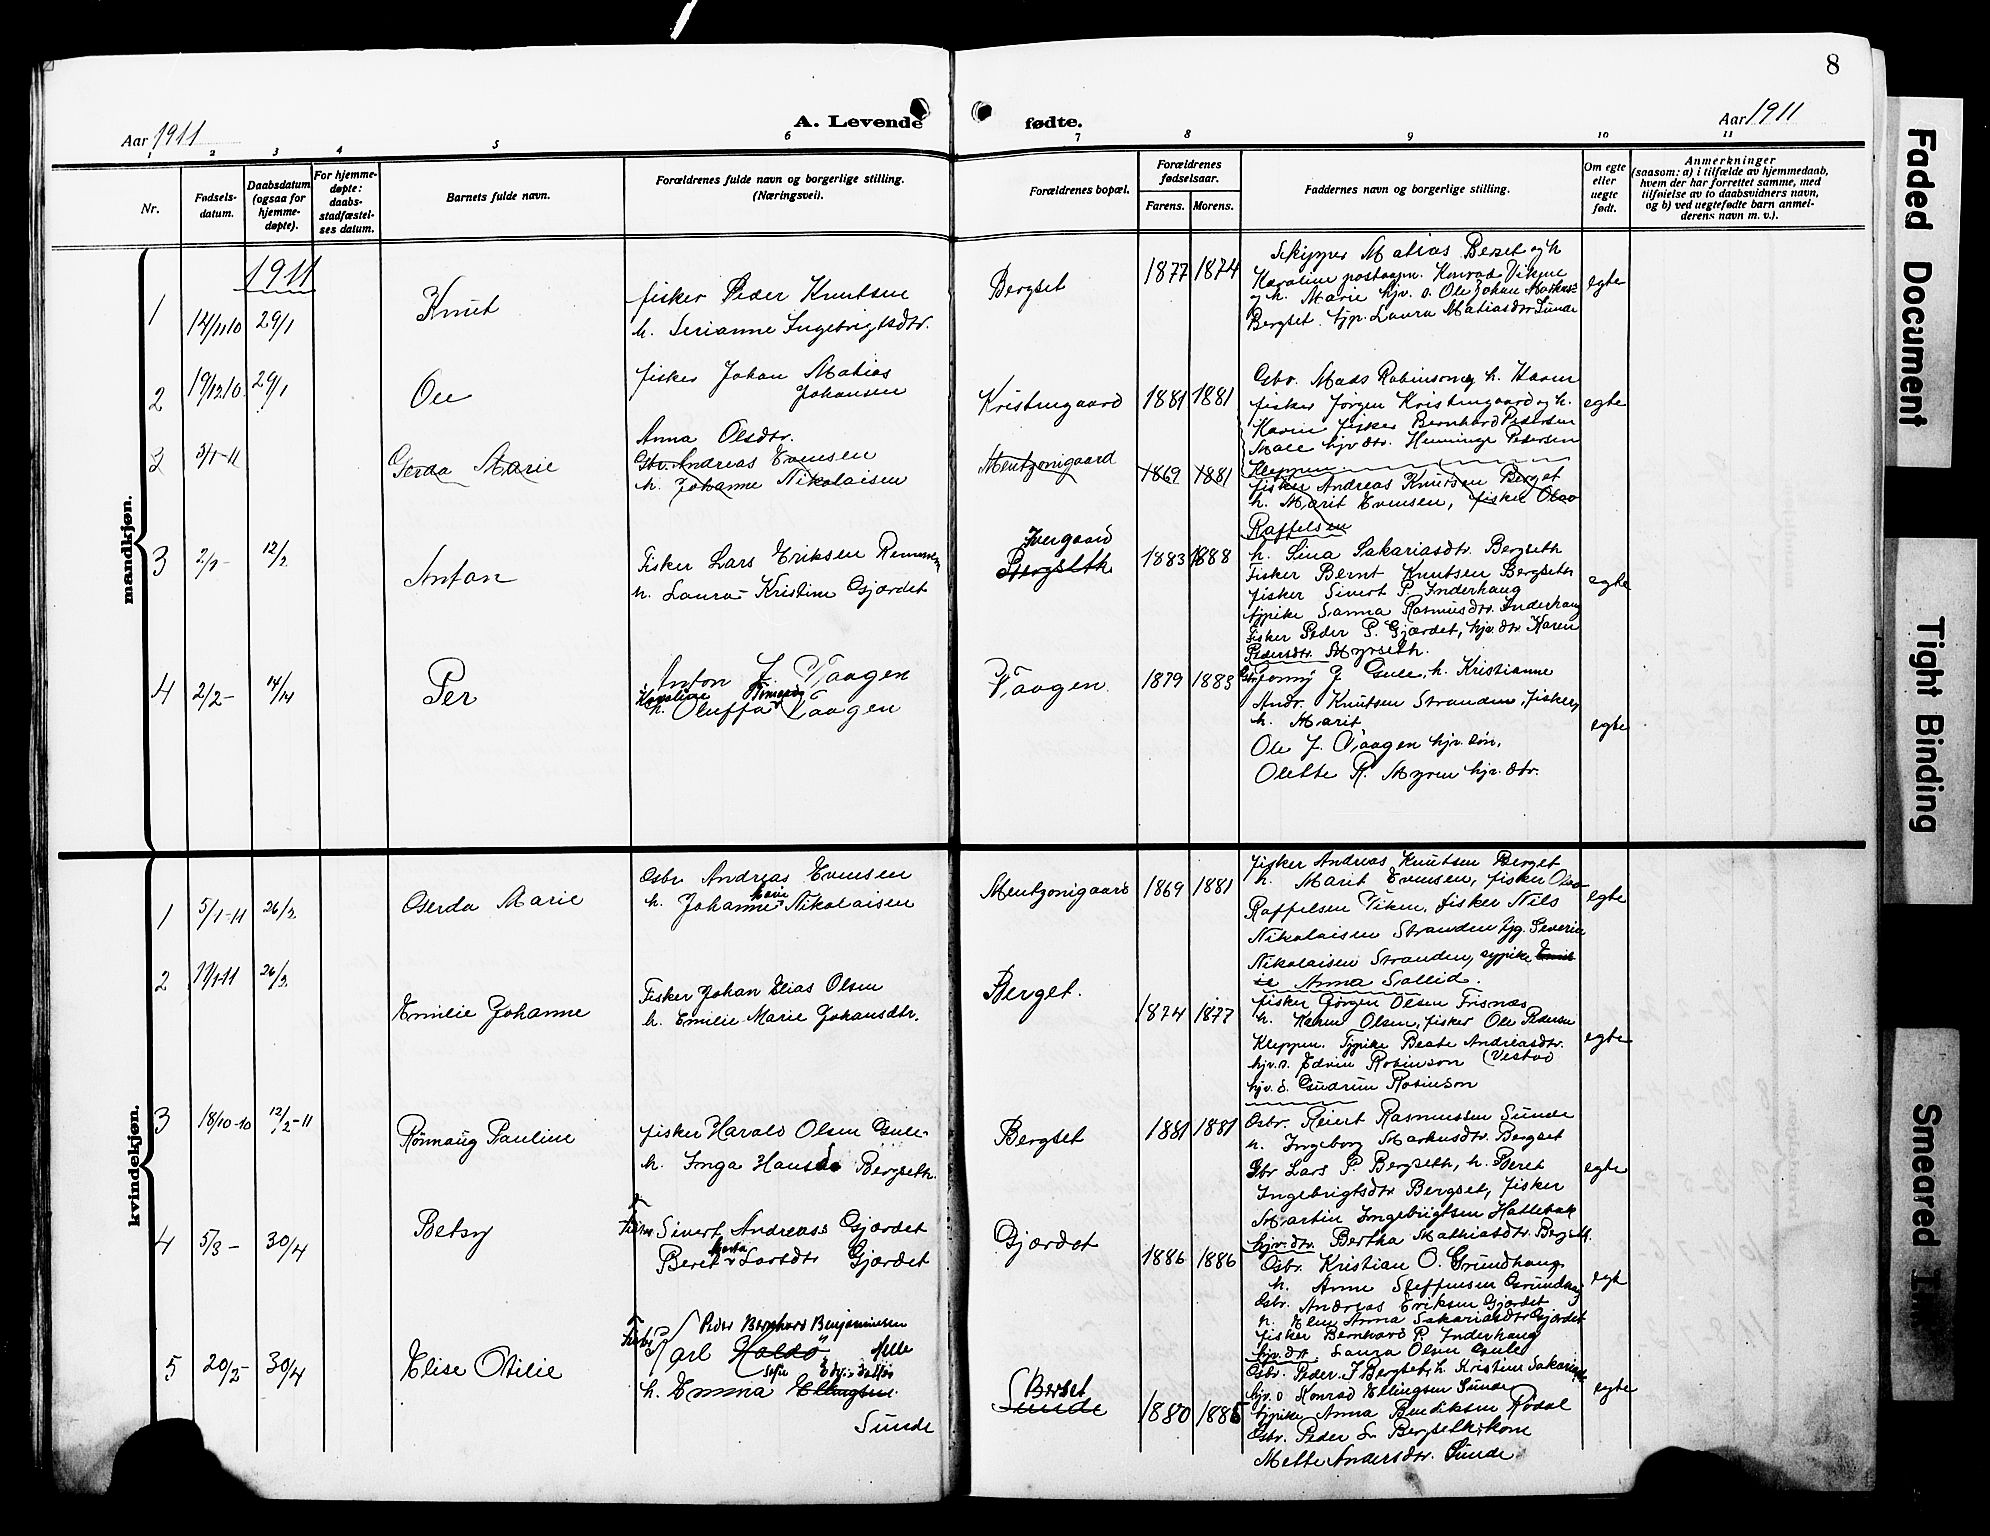 8
Aar 1911
A. Levende fødte.
Aar 1911
1 2 3 4 5 6 7 8 9 10 11
Nr.
Fødsels-
datum.
Daabsdatum
(ogsaa for
hjemme-
døpte).
For hjemme-
døpte:
daabs-
stadfæstel-
ses datum.
Barnets fulde navn.
Forældrenes fulde navn og borgerlige stilling.
(Næringsvei).
Forældrenes bopæl.
Forældrenes
fødselsaar.
Farens. Morens.
Faddernes navn og borgerlige stilling.
Om egte
eller
uegte
født.
Anmerkninger
(saasom: a) i tilfælde av hjemmedaab,
hvem der har forrettet samme, med
tilføielse av to daabsvidners navn,
og b) ved uegtefødte barn anmel-
derens navn m. v.).
mandkjøn.
1911
1 14/11 10 29/1 Knut
fisker Peder Knutsen
h. Serianne Ingebrigtsdtr.
Bergset 1877 1874
Skipper Matias Beret og h
Karoline postaapn. Konrad Viken
og h. Marie hjv. s. Ole Johan Markus
Bergset. tjp. Laura Matiasdtr Sunde
egte
2 19/12 10. 29/1 Ole
fisker Johan Matias
Johansen
Anna Olsdtr.
Kristengaard 1881 1881
Gbr. Mads Robinson og h. Karen
fisker Jørgen Kristengaard og h.
Karen fisker Bernhard Pedersen
hjv dtr. Henninge Pedersen
Kleppen
egte
3 5/1-11 Gerda Marie
Gbr. Andreas Evensen
h. Johanne Nikolaisen
Mentzonigaard 1869 1881
fisker Andreas Knutsen Berget
h. Marit Evensen, fisker Olav
Raffelsen
3 2/1- 12/2 Anton
Fisker Lars Eriksen Remmem
h. Laura Kristine Gjærdet
Ivergaard
Bergseth 1883 1888
h. Sina Sakariasdtr. Bergseth
Fisker Bernt Knutsen Bergseth
fisker Sivert P. Inderhaug
tjpike Sanna Rasmusdtr. Inderhaug
Fisker Peder P. Gjærdet, hjv. dtr Karen
Pedersdtr. Myrseth.
egte
4 2/2- 14/4 Per
Anton J. Vaagen
Karoline
h. Oluffa Vaagen
Vaagen. 1879 1883
Gbr. J. Gule, h. Kristianne
Andr. Knutsen Stranden, fisker,
h. Marit
Ole J. Vaagen hjv. søn,
Olette R. Myren hjv. dtr.
egte
kvindekjøn.
1 5/1-11 26/2 Gerda Marie
Gbr Andreas Evensen
h. Johanne Marie Nikolaisen
Mentzonigaard 1869 1881
fisker Andreas Knutsen Berget
h. Marit Evensen, fisker Olav
Raffelsen Viken, fisker Nils
Nikolaisen Stranden tjg. Severin
Nikolaisen Stranden, tjpike
Anna Sollid.
egte
2 17/1-11 26/3. Emilie Johanne
Fisker Johan Elias Olsen
h. Emilie Marie Johansdtr.
Berget. 1874 1877
fisker Jørgen Olsen Frisnæs
h. Karen Olsen, fisker Ole Pedersen
Kleppen. Tjpike Beate Andreasdtr.
hjv. s. Edvin Robinson (Vestad
hjv. d. Gudrun Robinson
egte
3 18/10-10 12/2-11 Rønnaug Pauline
fisker Harald Olsen Gule
h. Inga Hansd. Bergseth.
Bergset 1881 1881
Gbr. Reiert Rasmussen Sunde
h. Ingeborg Markusdtr. Bergset
Gbr Lars P. Bergseth, h. Beret
Ingebrigtsdtr Bergset, fisker
Martin Ingebrigtsen Hattebak
hjv. dtr. Bertha Mathiasdtr. Bergseth.
egte
4 5/3- 30/4 Betsy
Sivert Andreass. Gjærdet
Beret Marta Larsdtr Gjærdet
Gjærdet 1886 1886
Gbr. Kristian O. Grundhaug.
h. Anne Steffensen Grundhaug
Gbr. Andreas Eriksen Gjærdet
h. Elen Anna Sakariasdtr Gjærdet
fisker Bernhard P. Inderhaug
hjv. dtr. Laura Olsen Gule
egte
5 20/2- 30/4 Elise Otilie
Peder Bernhard Benjaminsen
Karl
h. Emma Ellingsen
Sunde
Berset
Sunde 1880 1885
Gbr. Peder J Bergset, h. Kristine Sakariasd
hjv. s Konrad Ellingsen Sunde
tjpike Anna Bendiksen Rødal
Gbr. Peder S. Bergseth, kone
Mette Andersdtr. Sunde
egte
Faded Document
Tight Binding
Smeared Ink